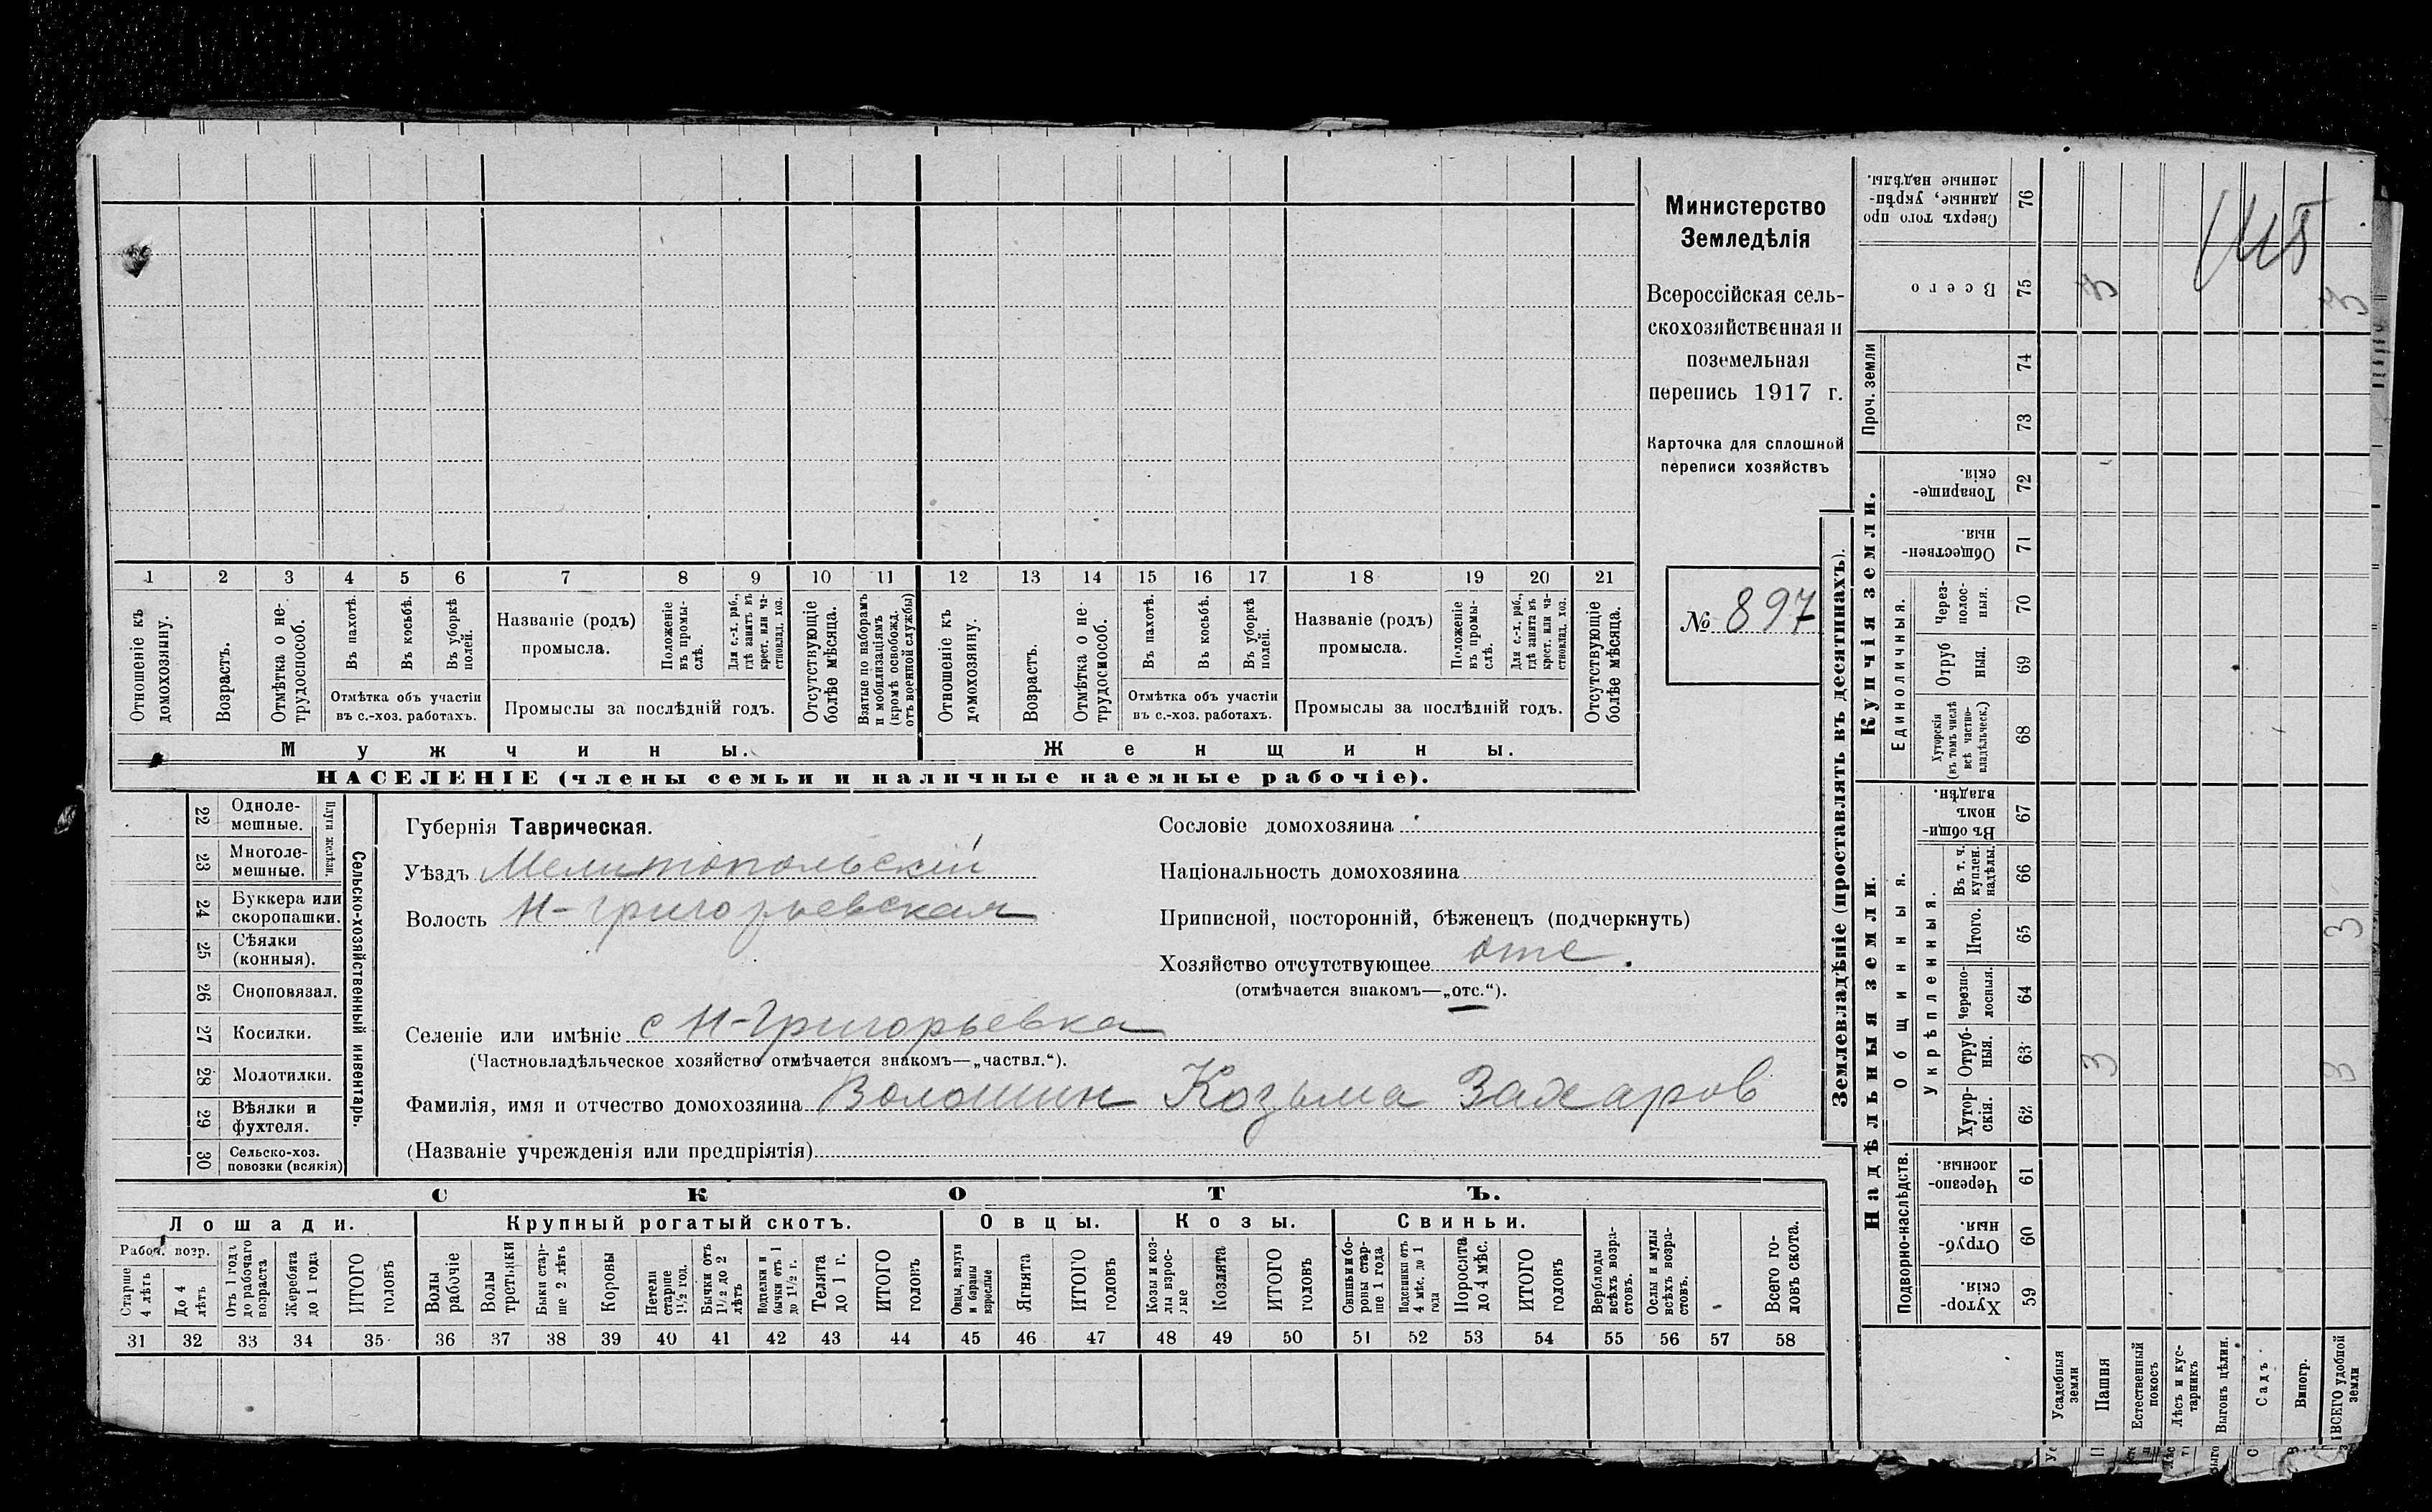 1 2 3 4 5 6 7 8 9 10 11 12 13 14 15 16 17 18 19 20 21
Отношеніе къ домохозяину.
Возрастъ.
Отмѣтка о не-
трудоспособ.
Въ пахотѣ.
Въ косьбѣ.
Въ уборкѣ
полей.
Отмѣтка объ участіи
въ с.-хоз. работахъ.
Названіе (родъ)
промысла.
Положеніе
въ промы-
слѣ.
Для с.-х. раб.,
гдѣ занятъ въ
крест. или ча-
стновлад. хоз.
Промыслы за послѣдній годъ.
Отсутствующіе
болѣе мѣсяца.
Взятые по наборамъ
и мобилизаціямъ
(кромѣ освобожд.
отъ военной службы)
Отношеніе къ
домохозяину.
Возрастъ.
Отмѣтка о не-
трудоспособ.
Въ пахотѣ.
Въ косьбѣ.
Въ уборкѣ
полей.
Отмѣтка объ участіи
въ с.-хоз. работахъ.
Названіе (родъ)
промысла.
Положеніе
въ промы-
слѣ.
Для с.-х. раб.,
гдѣ занята въ
крест. или ча-
стновлад. хоз.
Промыслы за послѣдній годъ.
Отсутствующіе
болѣе мѣсяца.
Мужчины.
Женщины.
НАСЕЛЕНІЕ (члены семьи и наличные наемные рабочіе).
Министерство
Земледѣлія
Всероссійская сель-
скохозяйственная и
поземельная
перепись 1917 г.
Карточка для сплошной
переписи хозяйствъ
№ 897
22 Одноле-
мешные.
23 Многоле-
мешные.
Плуги желѣзн.
24 Буккера или
скоропашки.
25 Сѣялки
(конныя).
26 Сноповязал.
27 Косилки.
28 Молотилки.
29 Вѣялки и
фухтеля.
30 Сельско-хоз.
повозки (всякія)
Сельско-хозяйственный инвентарь.
Губернія Таврическая.
Уѣздъ Мелитопольскій
Волость Н-Григорьевская
Селеніе или имѣніе с Н-Григорьевка
(Частновладѣльческое хозяйство отмѣчается знакомъ—„частвл.“).
Фамилія, имя и отчество домохозяина Волошин Козьма Захаров
(Названіе учрежденія или предпріятія)
Сословіе домохозяина
Національность домохозяина
Приписной, посторонній, бѣженецъ (подчеркнуть)
Хозяйство отсутствующее отс.
(отмѣчается знакомъ—„отс.“).
СКОТЪ.
Лошади.
Крупный рогатый скотъ.
Овцы.
Козы.
Свиньи.
Рабоч. возр.
Старше
4 лѣтъ
До 4
лѣтъ
Отъ 1 года
до рабочаго
возраста
Жеребята
до 1 года
ИТОГО
головъ
Волы
рабочіе
Волы
третьяки
Быки стар-
ше 2 лѣтъ
Коровы
Нетели
старше
1½ год.
Бычки отъ
1½ до 2
лѣтъ
Подтелки и
бычки отъ 1
до 1½ г.
Телята
до 1 г.
ИТОГО
головъ
Овцы, валухи
и бараны
взрослые
Ягнята
ИТОГО
головъ
Козы и коз-
лы взрос-
лые
Козлята
ИТОГО
головъ
Свиньи и бо-
ровы стар-
ше 1 года
Подсвинки отъ
4 мѣс. до 1
года
Поросята
до 4 мѣс.
ИТОГО
головъ
Верблюды
всѣхъ возра-
стовъ.
Ослы и мулы
всѣхъ возра-
стовъ.
Всего го-
ловъ скота.
31 32 33 34 35 36 37 38 39 40 41 42 43 44 45 46 47 48 49 50 51 52 53 54 55 56 57 58
Землевладѣніе (проставлять въ десятинахъ).
Надѣльныя земли.
Купчія земли.
Проч. земли
Подворно-наслѣдств.
Общинныя.
Укрѣпленныя.
Единоличныя.
Сверхъ того про
данные, укрѣп-
ленные надѣлы.
76
Всего
75 3 3
74
73
Товарище-
скія.
72
Обществен-
ныя.
71
Через-
полос-
ныя.
70
Отруб
ныя.
69
Хуторскія
(въ томъ числѣ
всѣ частно-
владѣльческ.)
68
Въ общи-
номъ
владѣн.
67
Въ т. ч.
куплен.
надѣлы.
66
Итого.
65 3
Черезпо-
лосныя.
64
Отруб-
ныя.
63 3 3
Хутор-
скія.
62
Черезпо-
лосныя.
61
Отруб-
ныя.
60
Хутор-
скія.
59
Усадебныя
земли
Пашня
Естественный
покосъ
Лѣсъ и кус-
тарникъ
Выгонъ цѣлин.
Садъ
Виногр.
ВСЕГО удобной
земли